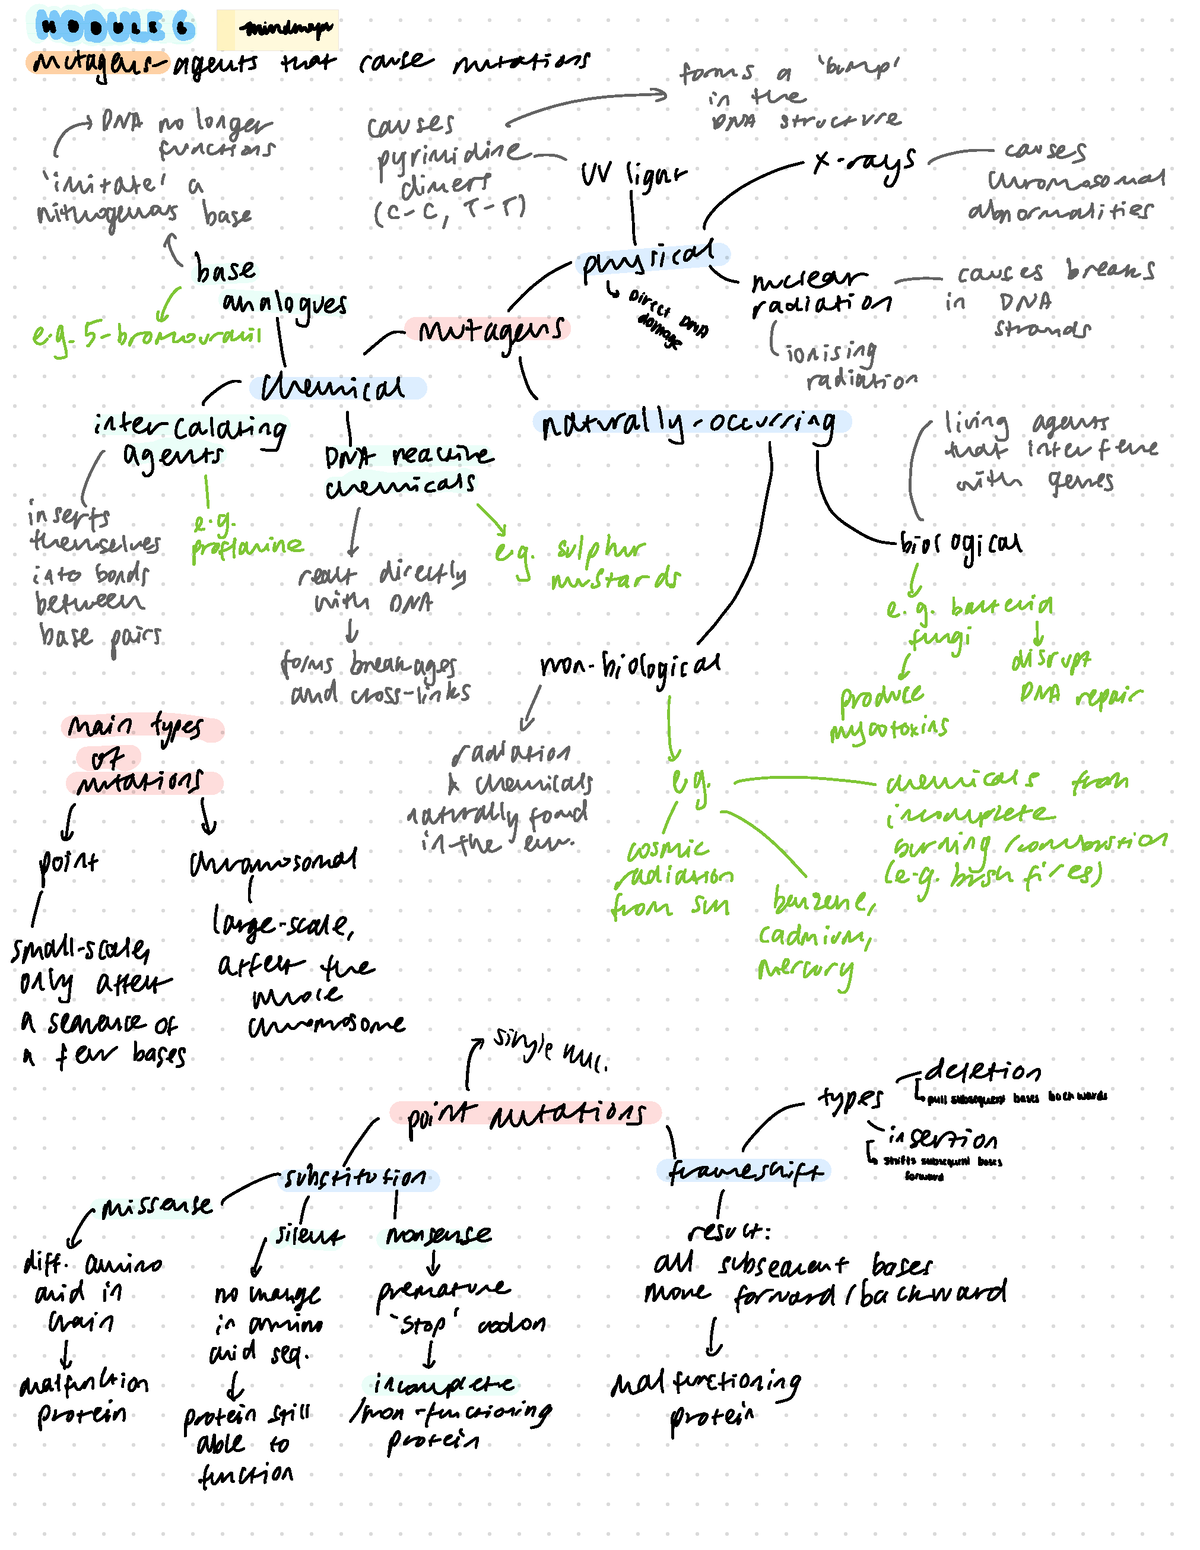 MODULE 6
mindmaps
mutagens - agents that cause mutations
forms a 'bump'
in the
DNA structure
DNA no longer
functions
'imitate' a
nitrogenous base
base
analogues
e.g. 5-bromouracil
causes
pyrimidine
dimers
(C-C, T-T)
UV light
x-rays
causes
chromosomal
abnormalities
physical
Direct DNA
damage
nuclear
radiation
causes breaks
in DNA
strands
ionising
radiation
mutagens
chemical
naturally-occurring
intercalating
agents
inserts
themselves
into bonds
between
base pairs
e.g.
proflavine
DNA reactive
chemicals
react directly
with DNA
forms breakages
and cross-links
e.g. sulphur
mustards
living agents
that interfere
with genes
biological
e.g. bacteria
fungi
disrupt
DNA repair
produce
mycotoxins
non-biological
radiation
& chemicals
naturally found
in the env.
e.g.
cosmic
radiation
from sun
benzene,
cadmium,
mercury
chemicals from
incomplete
burning/combustion
(e.g. bush fires)
main types
of
mutations
point
small-scale,
only affect
a sequence of
a few bases
chromosomal
large-scale,
affect the
whole
chromosome
single nuc.
point mutations
substitution
missense
diff. amino
acid in
chain
malfunction
protein
silent
no change
in amino
acid seq.
protein still
able to
function
nonsense
premature
'stop' codon
incomplete
/non-functioning
protein
frameshift
types
deletion
pull subsequent bases backwards
insertion
shifts subsequent bases
forward
result:
all subsequent bases
move forward/backward
malfunctioning
protein